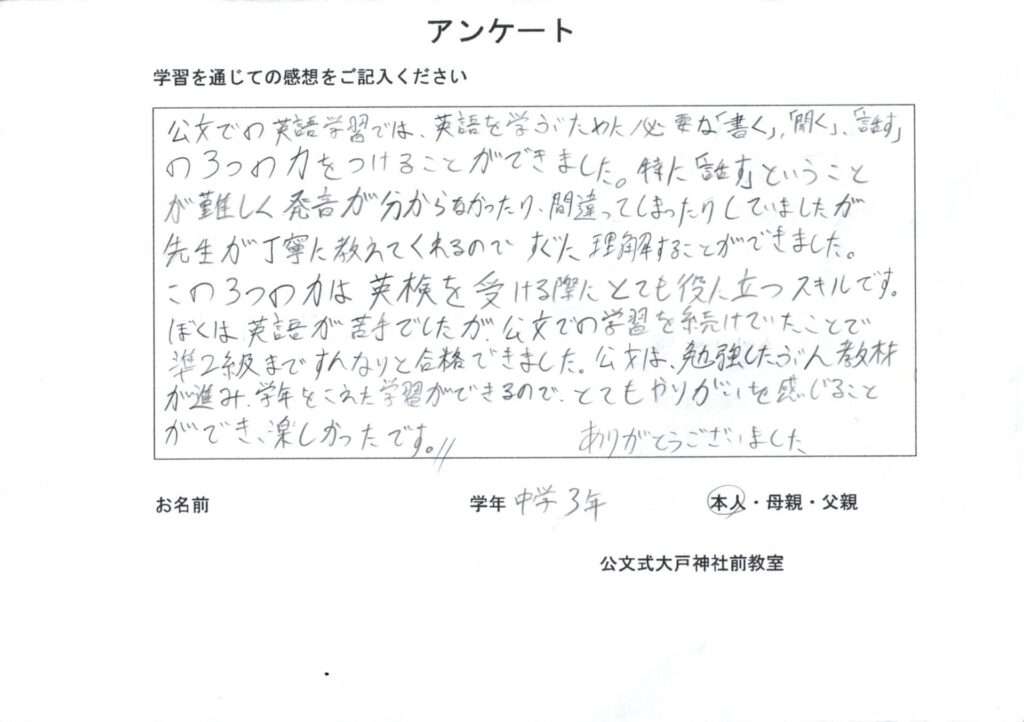 アンケート
学習を通じての感想をご記入ください
公文での英語学習では、英語を学ぶために必要な「書く」,「聞く」、「話す」
の3つの力をつけることができました。特に「話す」ということ
が難しく発音が分からなかったり、間違ってしまったりしていましたが
先生が丁寧に教えてくれるので すぐに理解することができました。
この3つの力は英検を受ける際にとても役に立つスキルです。
ぼくは英語が苦手でしたが、公文での学習を続けていたことで
準2級まですんなりと合格できました。公文は、勉強したぶん教材
が進み、学年をこえた学習ができるので、とてもやりがいを感じること
ができ、楽しかったです。//
ありがとうございました
お名前 学年 中学3年 本人・母親・父親
公文式大戸神社前教室